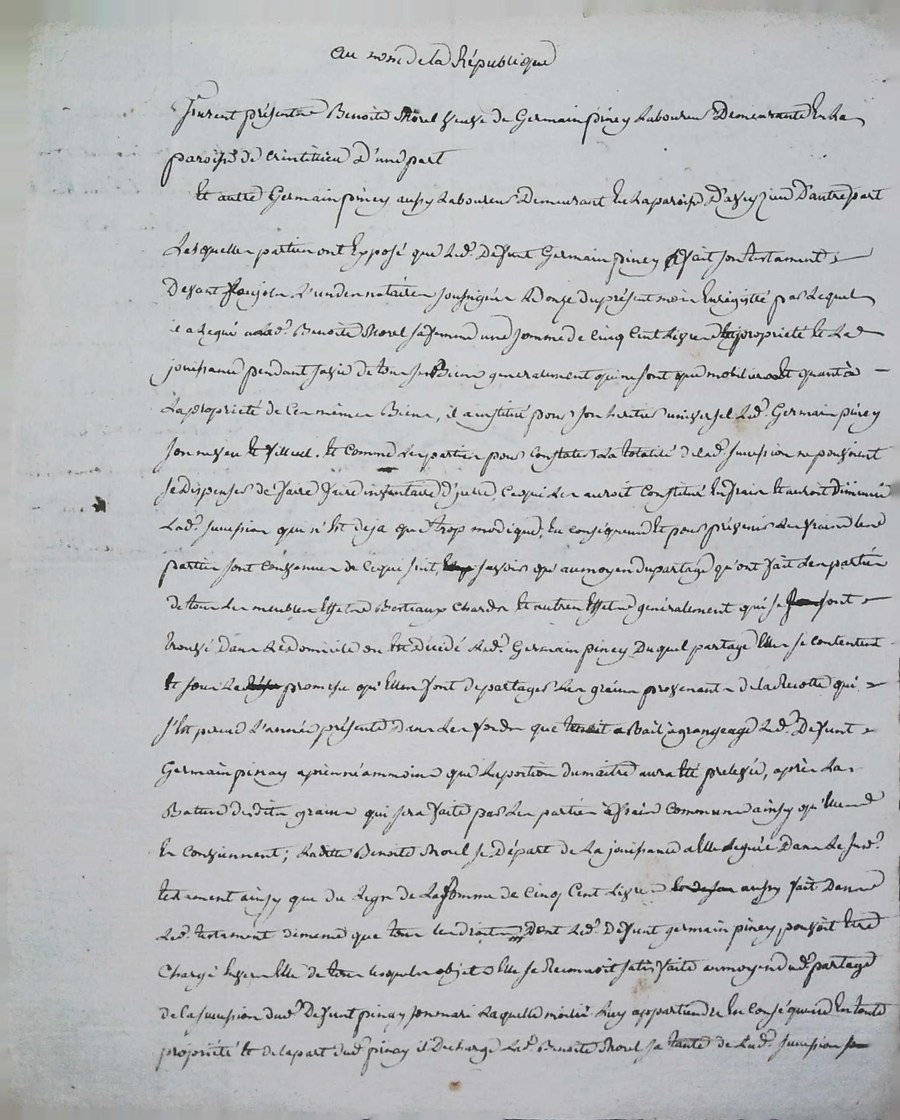 au nom de la République
Furent présents Benoite Morel veuve de Germain piney Laboureur Demeurante En La
paroisse de D'une part
Et autre Germain piney aussy Laboureur Demeurant En La paroisse D'autre part
Lesquelles parties ont Exposé que Led. Defunt Germain piney a fait son testament
Devant L'un des notaires soussignés Le Onze du présent mois Enregistré par Lequel
il a Legué a lad. Benoite Morel sa femme une somme de Cinq Cent Livres En propriété Et La
jouissance pendant sa vie de tous ses Biens generalement qui ne sont que mobiliers Et quant à
La propriété de Ces mêmes Biens, il a institué pour son heritier universel Led. Germain piney
son neveu Et filleul. Et Comme Les parties pour Constater La totalité de lad. succession ne pouvoient
se dispenser de faire faire inventaire Ce qui Les auroit Constitué En frais Et auroit Diminué
Lad. succession qui n'Est deja que trop modique, En conséquence Et pour prévenir Les frais Les
parties sont Convenues de Ce qui suit, savoir qu'au moyen du partage qu'ont fait Les parties
de tous Les meubles Effets Bestiaux Et autres Effets généralement qui se sont
trouvé dans Le domicile ou Est décédé Led. Germain piney Duquel partage Elles se contentent
Et sous La promesse qu'Elles font de partager Les grains provenants de la Recolte qui
s'Est perçue L'année présente dans Les fonds que tenoit a Bail à grangeage Led. Defunt
Germain pinay après néammoins que La portion du maitre aura Eté prelevée, après La
Batture desdits grains qui sera faite par Les parties à frais Communs ainsy qu'Elles
En Conviennent; Ladite Benoite Morel se Départ de La jouissance a Elle Leguée Dans Le susd.
testament ainsy que du Legs de La Somme de Cinq Cent Livres aussy fait Dans
Led. testament de meme que tous Les droits Dont Led. Defunt germain piney pouvoit Etre
Chargé Envers Elle de tous lesquels objets Elle se Reconnoit satisfaite au moyen dud. partage
de La succession dud. Defunt pinay son mari Laquelle moitié Luy appartiendra En Conséquence En toute
propriété Et de La part dud. pinay il Decharge Lad. Benoite Morel sa tante de Lad. succession